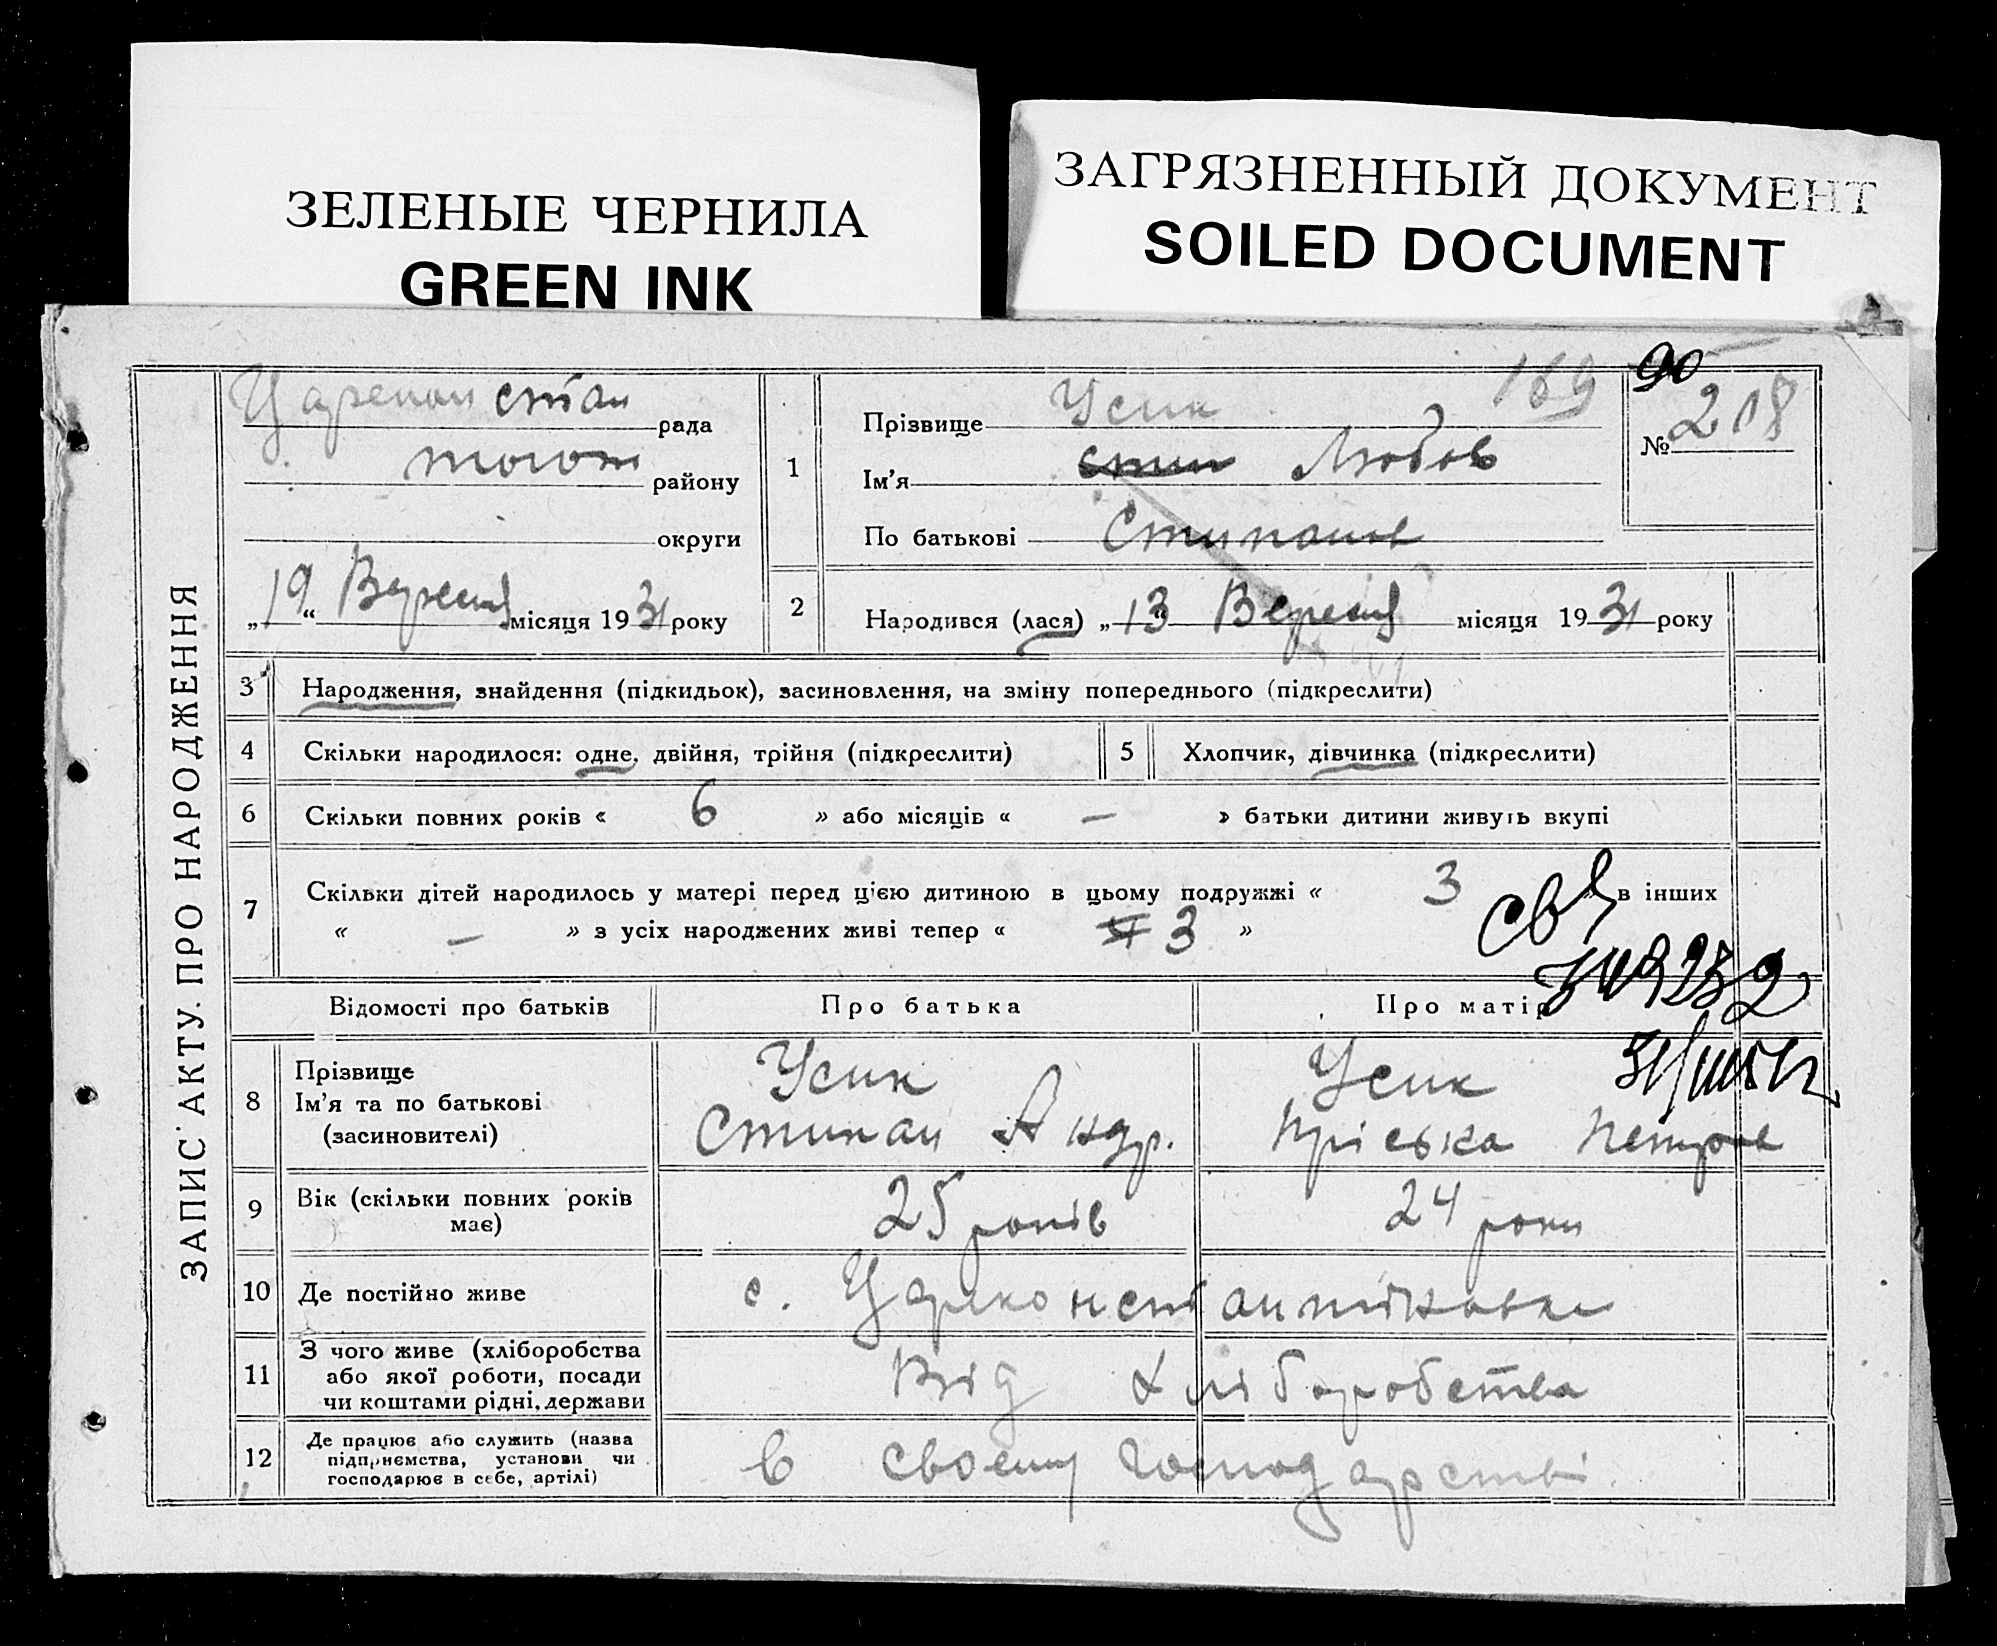 ЗЕЛЕНЫЕ ЧЕРНИЛА
GREEN INK
ЗАГРЯЗНЕННЫЙ ДОКУМЕНТ
SOILED DOCUMENT
ЗАПИС АКТУ ПРО НАРОДЖЕННЯ
Царекон стан рада
того ж району
округи
„19“ Вересня місяця 1931 року
169
90
№ 218
1
Прізвище Усик
Ім'я Любов
По батькові Стипанов
2
Народився (лася) „13“ Вересня місяця 1931 року
3 Народження, знайдення (підкидьок), засиновлення, на зміну попереднього (підкреслити)
4 Скільки народилося: одне, двійня, трійня (підкреслити)
5 Хлопчик, дівчинка (підкреслити)
6 Скільки повних років « 6 » або місяців « — » батьки дитини живуть вкупі
7 Скільки дітей народилось у матері перед цією дитиною в цьому подружжі « 3 » в інших
« — » з усіх народжених живі тепер « 3 »
Відомості про батьків
Про батька
Про матір
8 Прізвище
Ім'я та по батькові
(засиновителі)
Усик
Стипан Андр.
Усик
Пріська Петров
9 Вік (скільки повних років
має)
25 років
24 роки
10 Де постійно живе
с. Царконстантіновка
11 З чого живе (хліборобства
або якої роботи, посади
чи коштами рідні, держави
Від хліборобства
12 Де працює або служить (назва
підприємства, установи чи
господарює в себе, артілі)
в своєму господарстві.